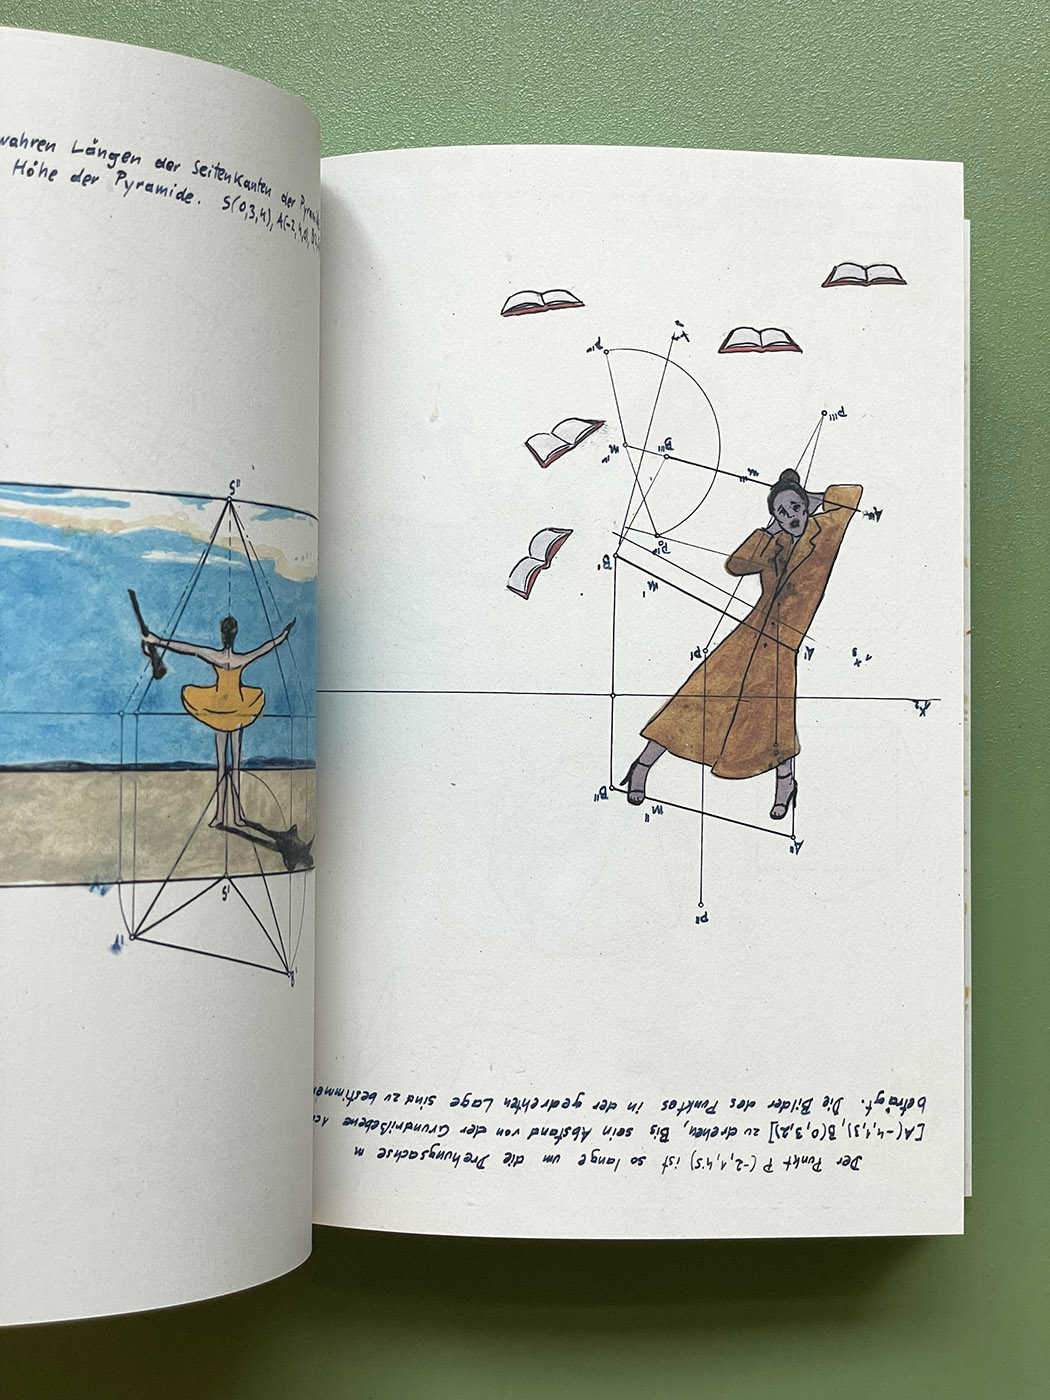 wahren Längen der Seitenkanten der
Höhe der Pyramide. S(0,3,4), A(-2,4,0),
S"
S'
A'
B'
Der Punkt P (-2,1,4'5) ist so lange um die Drehungsachse m
[A(-4,1,3), B(0,3,2)] zu drehen, Bis sein Abstand von der Grundrißebene
beträgt. Die Bilder des Punktes in der gedrehten Lage sind zu bestimmen
P"
A"
m"
B"
A'
P'
m'
B'
B'''
m'''
P'''